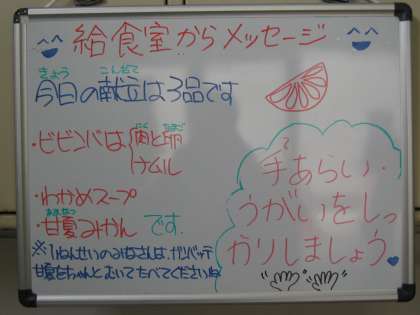 給食室からメッセージ
きょう こんだて
今日の献立は3品です
・ビビンバは 肉と卵
ナムル
・わかめスープ
あまなつ
・甘夏みかん です。
※1ねんせいのみなさんは、ガンバッテ
甘夏をちゃんとむいてたべてくださいね
手あらい・
うがいをしっ
かりしましょう。